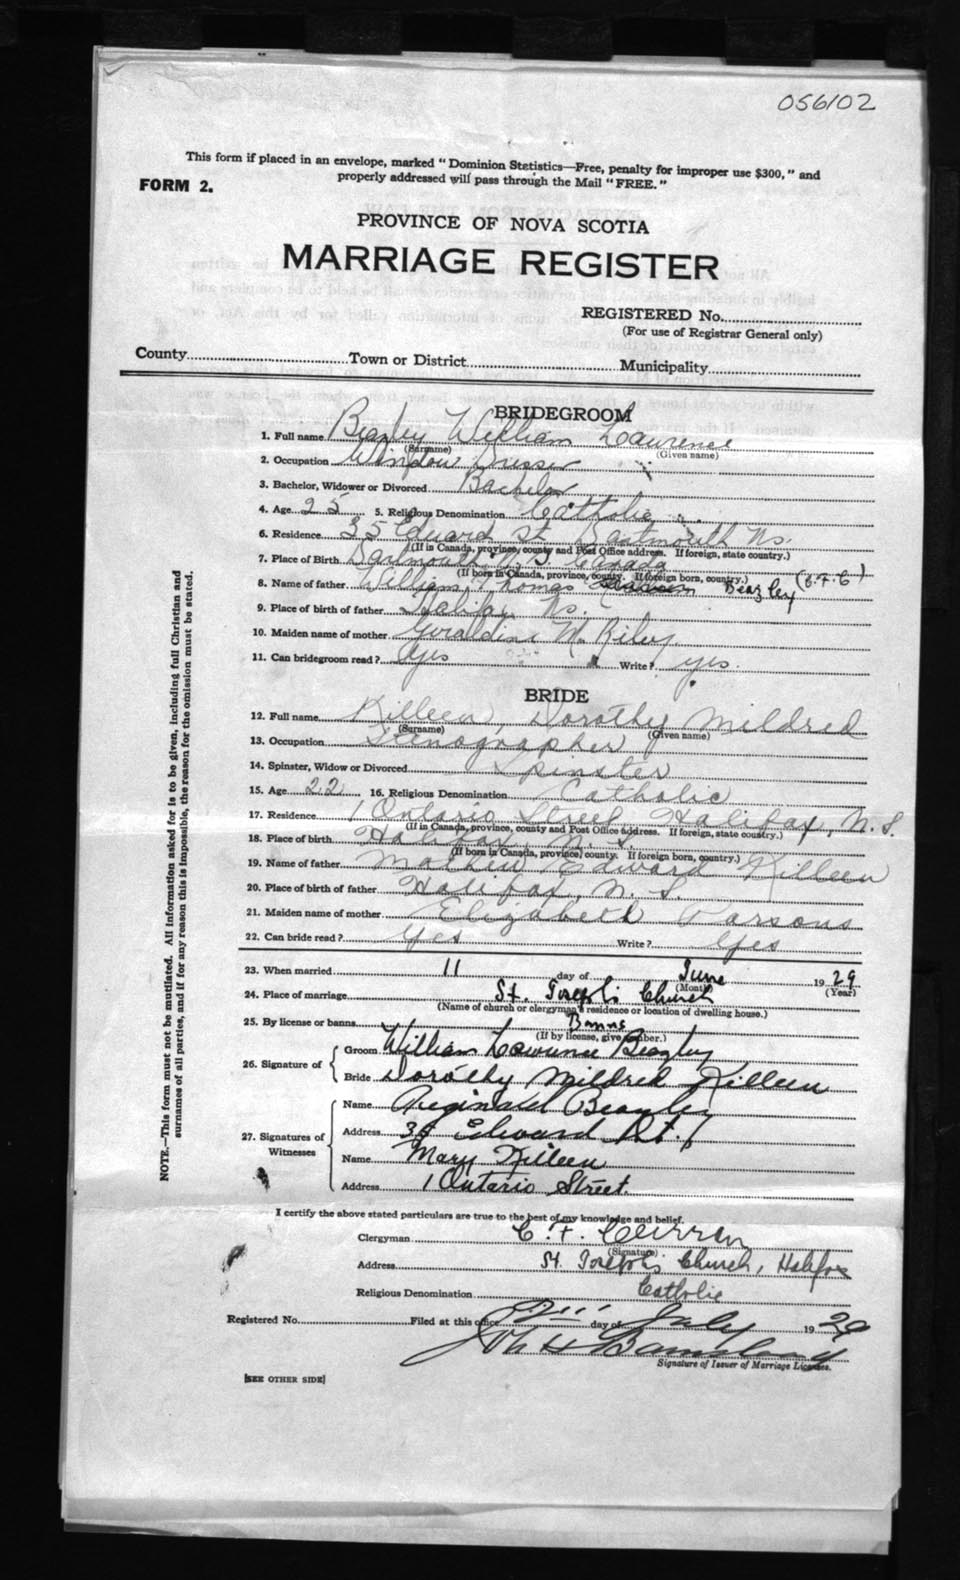 056102
This form if placed in an envelope, marked "Dominion Statistics—Free, penalty for improper use $300," and
properly addressed will pass through the Mail "FREE."
FORM 2.
PROVINCE OF NOVA SCOTIA
MARRIAGE REGISTER
REGISTERED No.
(For use of Registrar General only)
County Town or District Municipality
BRIDEGROOM
1. Full name Beazley William Lawrence
(Surname) (Given name)
2. Occupation Window Dresser
3. Bachelor, Widower or Divorced Bachelor
4. Age 25 5. Religious Denomination Catholic
6. Residence 35 Edward St Dartmouth Ns.
(If in Canada, province, county and Post Office address. If foreign, state country.)
7. Place of Birth Dartmouth N.S. Canada
(If born in Canada, province, county. If foreign born, country.)
8. Name of father William Thomas Beazley (C.F.C)
9. Place of birth of father Halifax Ns.
10. Maiden name of mother Geraldine M. Riley
11. Can bridegroom read? Yes Write? yes.
BRIDE
12. Full name Killeen, Dorothy Mildred
(Surname) (Given name)
13. Occupation Stenographer
14. Spinster, Widow or Divorced Spinster
15. Age 22 16. Religious Denomination Catholic
17. Residence 1 Ontario Street Halifax, N.S.
(If in Canada, province, county and Post Office address. If foreign, state country.)
18. Place of birth Halifax, N. S.
(If born in Canada, province, county. If foreign born, country.)
19. Name of father Mathew Edward Killeen
20. Place of birth of father Halifax, N. S.
21. Maiden name of mother Elizabeth Parsons
22. Can bride read? Yes Write? Yes
23. When married 11 day of June 1929
(Month) (Year)
24. Place of marriage St. Joseph's Church
(Name of church or clergyman's residence or location of dwelling house.)
25. By license or banns Banns
(If by license, give number.)
26. Signature of
Groom William Lawrence Beazley
Bride Dorothy Mildred Killeen
27. Signatures of Witnesses
Name Reginald Beazley
Address 35 Edward St.
Name Mary Killeen
Address 1 Ontario Street.
I certify the above stated particulars are true to the best of my knowledge and belief.
Clergyman C. F. Curran
(Signature)
Address St. Joseph's Church, Halifax
Religious Denomination Catholic
Registered No. Filed at this office day of July 1929
Signature of Issuer of Marriage Licenses.
[SEE OTHER SIDE]
NOTE.—This form must not be mutilated. All information asked for is to be given, including full Christian and
surnames of all parties, and if for any reason this is impossible, the reason for the omission must be stated.